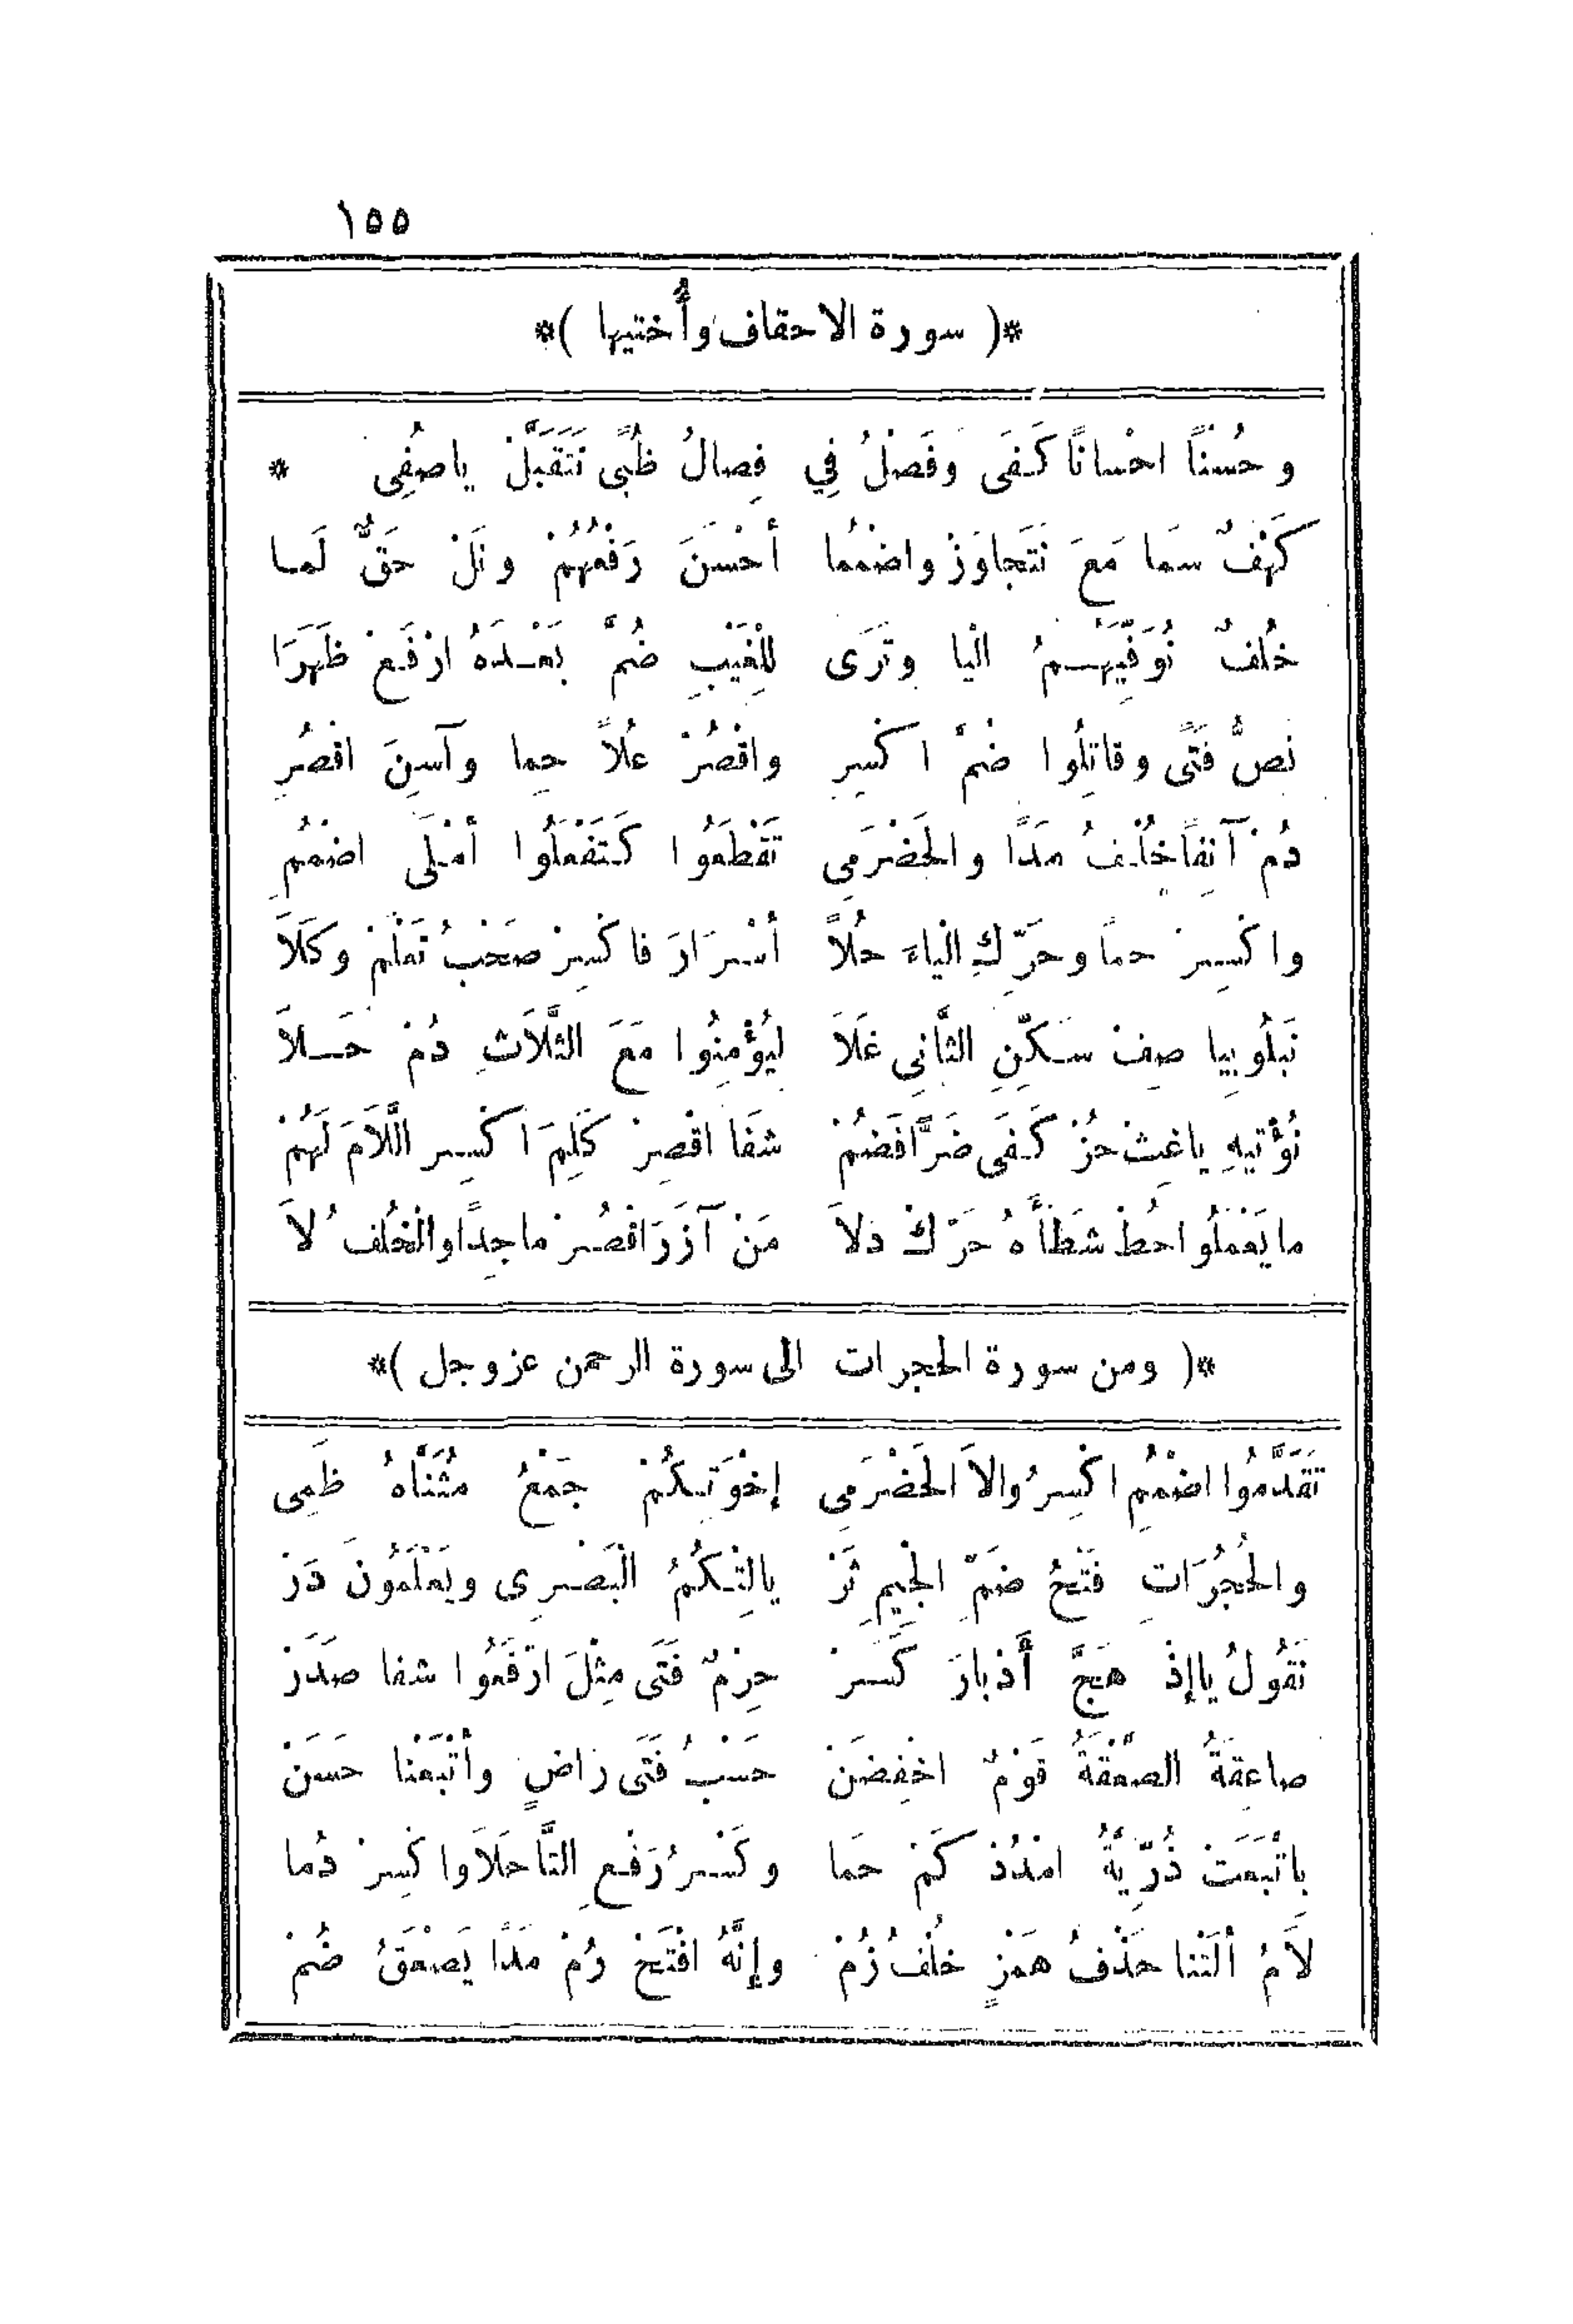 ١٥٥
*( سورة الاحقاف وأُختيها )*
وحُسْنًا احْسانًا كَفَى وفَصْلُ فِي فِصالُ ظُبًى نَتَقَبَّلْ ياصُفِى *
كَهْفٌ سَمَا مَعَ نَتَجاوَزْ واضْمُما أحْسَنَ رَفْعُهُمْ ونَلْ حَقٌّ لَمـا
خُلفٌ نُوَفِّيَهُـمُ الْيا وتَرَى لِلْغَيْبِ ضُمَّ بَعْـدَهُ ارْفَـعْ ظَهَرَا
نَصُّ فَتًى وقاتِلُوا ضُمَّ اكْسِرِ واقْصُرْ عُلاً حِما وآسِنِ اقْصُرِ
دُمْ آنِفًا خُلْـفُ مَدًا والحَضْرَمِى تَقْطَعُوا كَـتَفْعَلُوا أمْـلَى اضْمُمِ
واكْسِـرْ حمًا وحَرِّكِ الْياءَ حُلاً أسْـرَارَ فاكْسِرْ صَحْبُ نَعْلَمْ وكَلاَ
نَبْلُو بِيا صِفْ سَـكِّنِ الثَّانِى غَلَا لِيُؤْمِنُوا مَعَ الثَّلاَثِ دُمْ حَـلاَ
نُؤْتِيهِ ياغِثْ حُزْ كَـفَى ضَرًّا فَضُمْ شَفَا اقْصِرْ كَلِمَ اكْسِـرِ اللَّامَ لَهُمْ
مايَعْمَلُو احُطْ شَطْأَهُ حَرِّكْ دَلاَ مَنْ آزَرَ اقْصُـرْ ماجِدًا والْخُلْفُ لاَ
*( ومن سورة الحجرات الى سورة الرحمن عز وجل )*
تَقَدَّمُوا اضْمُمِ اكْسِرُوا لاَ الحَضْرَمِى إخْوَتِـكُمْ جَمْعُ مُثَنَّاهُ ظَمِى
والحُجُرَاتِ فَتْحُ ضَمِّ الْجِيمِ ثَرْ يالِتْـكُمُ الْبَصْـرِى ويَعْلَمُونَ دَرْ
نَقُولُ ياإذْ هَجَّ أَدْبارَ كَسَـرْ حِرْمٌ فَتَى مِثْلَ ارْفَعُوا شفا صَدَرْ
صاعِقَةُ الصَّعْقَةُ قَوْمٌ اخْفِضَنْ حَسْبُ فَتَى رَاضٍ وأتْبَعْنا حَسَنْ
بِاتَّبَعَتْ ذُرِّيَّةٌ امْدُدْ كَمْ حَمَا وكَسْـرُ رَفْـعِ التَّا حَلَا واكْسِرْ دُما
لاَمُ ألَتْنا حَذْفُ هَمْزٍ خُلْفُ زُمْ وإنَّهُ افْتَحْ رُمْ مَدًا يَصْعَقُ ضُمْ